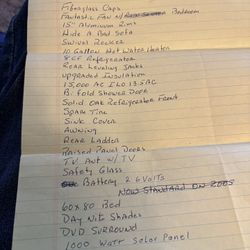 Fiberglass Caps
Fantastic Fan w/ Bedroom
15" Aluminum Rims
Hide A Bed Sofa
Swivel Rocker
10 Gallon Hot Water Heater
8 CF Refrigerator
Rear Leveling Jacks
Upgraded Insulation
15,000 AC ILO 13.5 AC
B.fold Shower Door
Solid Oak Refrigerator Front
Spare Tire
Sink Cover
Awning
Rear Ladder
Raised Panel Doors
TV Ant w/ TV
Safety Glass
Battery 2 6 Volts
Now Standard on 2005
60 x 80 Bed
Day Nite Shades
DVD Surround
1000 Watt Solar Panel